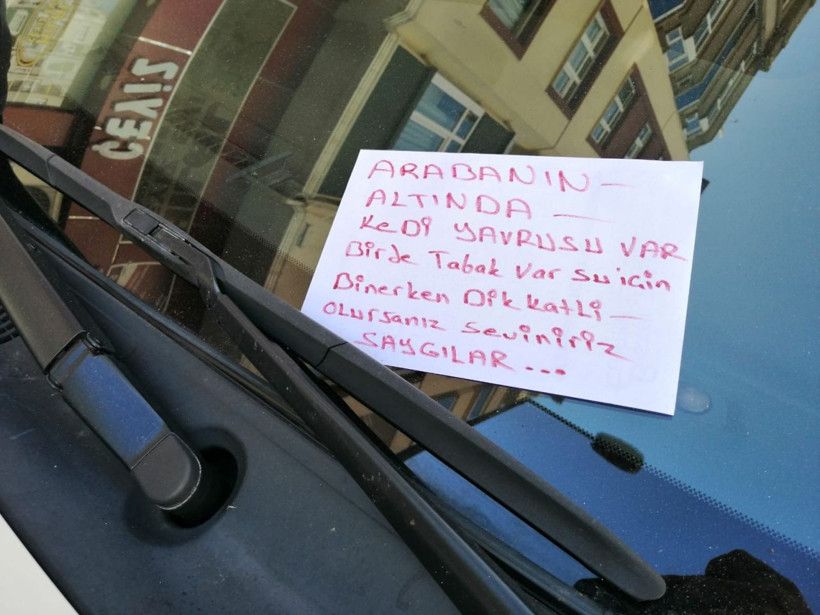 CEVİZ
ARABANIN —
ALTINDA —
KEDİ YAVRUSU VAR
Birde Tabak Var su için
Binerken Dikkatli —
OLursanız Seviniriz
SAYGILAR...